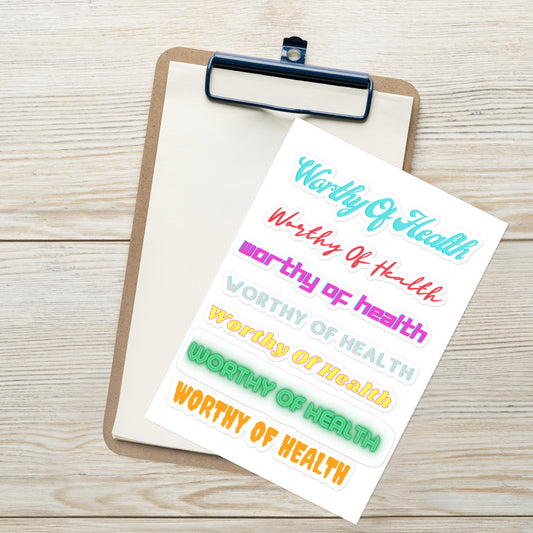 Worthy Of Health
Worthy Of Health
worthy of health
WORTHY OF HEALTH
Worthy Of Health
WORTHY OF HEALTH
WORTHY OF HEALTH